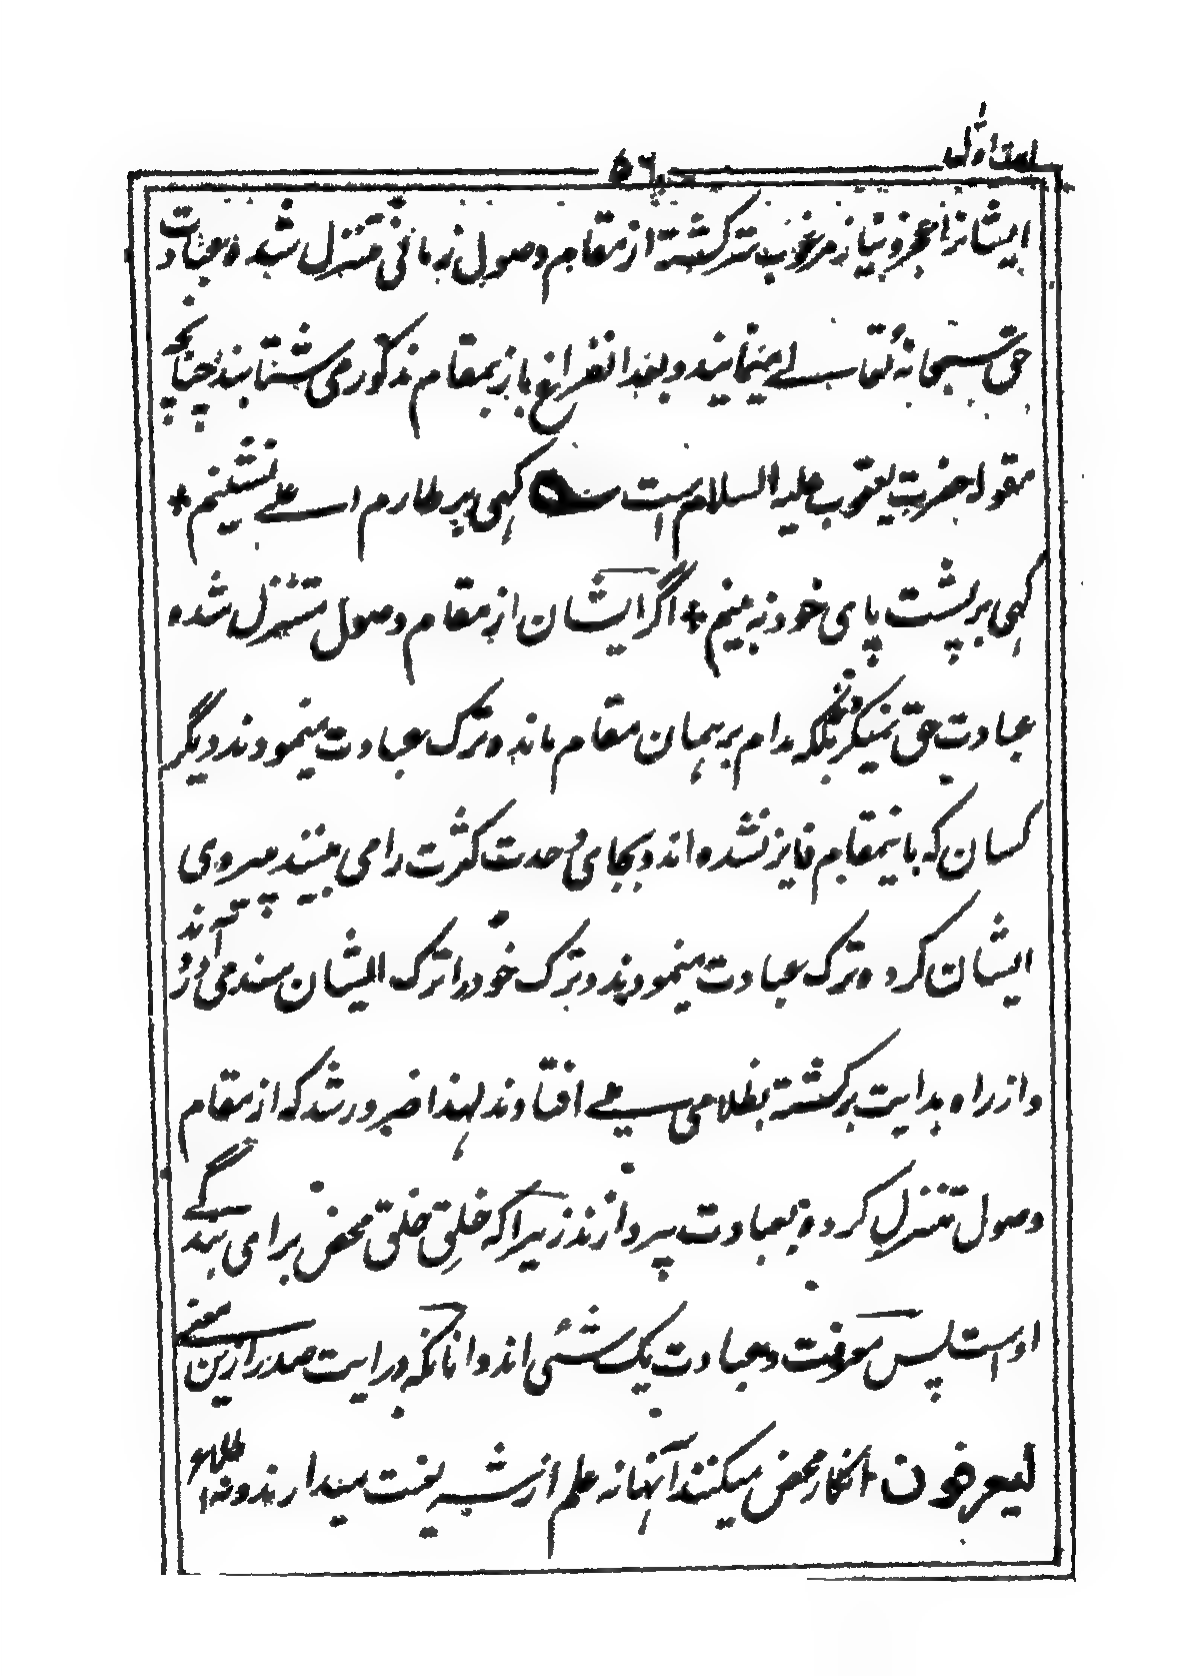 لمعۂ اول
۵۶
ایشانرا عجز و نیاز مرغوب تر گشته از مقام وصول زمانی متنزل شده بعبادت
حق سبحانہ تعالے مینمایند و بعد انفراغ باز بمقام مذکور می شتابند چنانچہ
مقولہ حضرت یعقوب علیہ السلام است گہی بر طارم اعلے نشینم +
گہی بر پشت پای خود نہ بینم + اگر ایشان از مقام وصول متنزل شده
عبادت حق نمیکردند بلکہ مدام بر ہمان مقام ماندہ ترک عبادت مینمودند دیگر
کسان کہ باینمقام فایز نشده اند و بجای وحدت کثرت را می بینند پیروی
ایشان کرده ترک عبادت مینمودند و ترک خود را ترک ایشان سند می آوردند
و از راه ہدایت برگشتہ بظلامی مے افتاوند لہذا ضرور شد کہ از مقام
وصول متنزل کرده بعبادت پردازند زیرا کہ خلق خلق محض برای بندگے
اوست پس معرفت و عبادت یک شئی اند و انانکہ در ایت صدر ازین معنے
لیعرفون انکار محض میکنند آنہا نہ علم از شریعت میدارند و نہ اطلاع